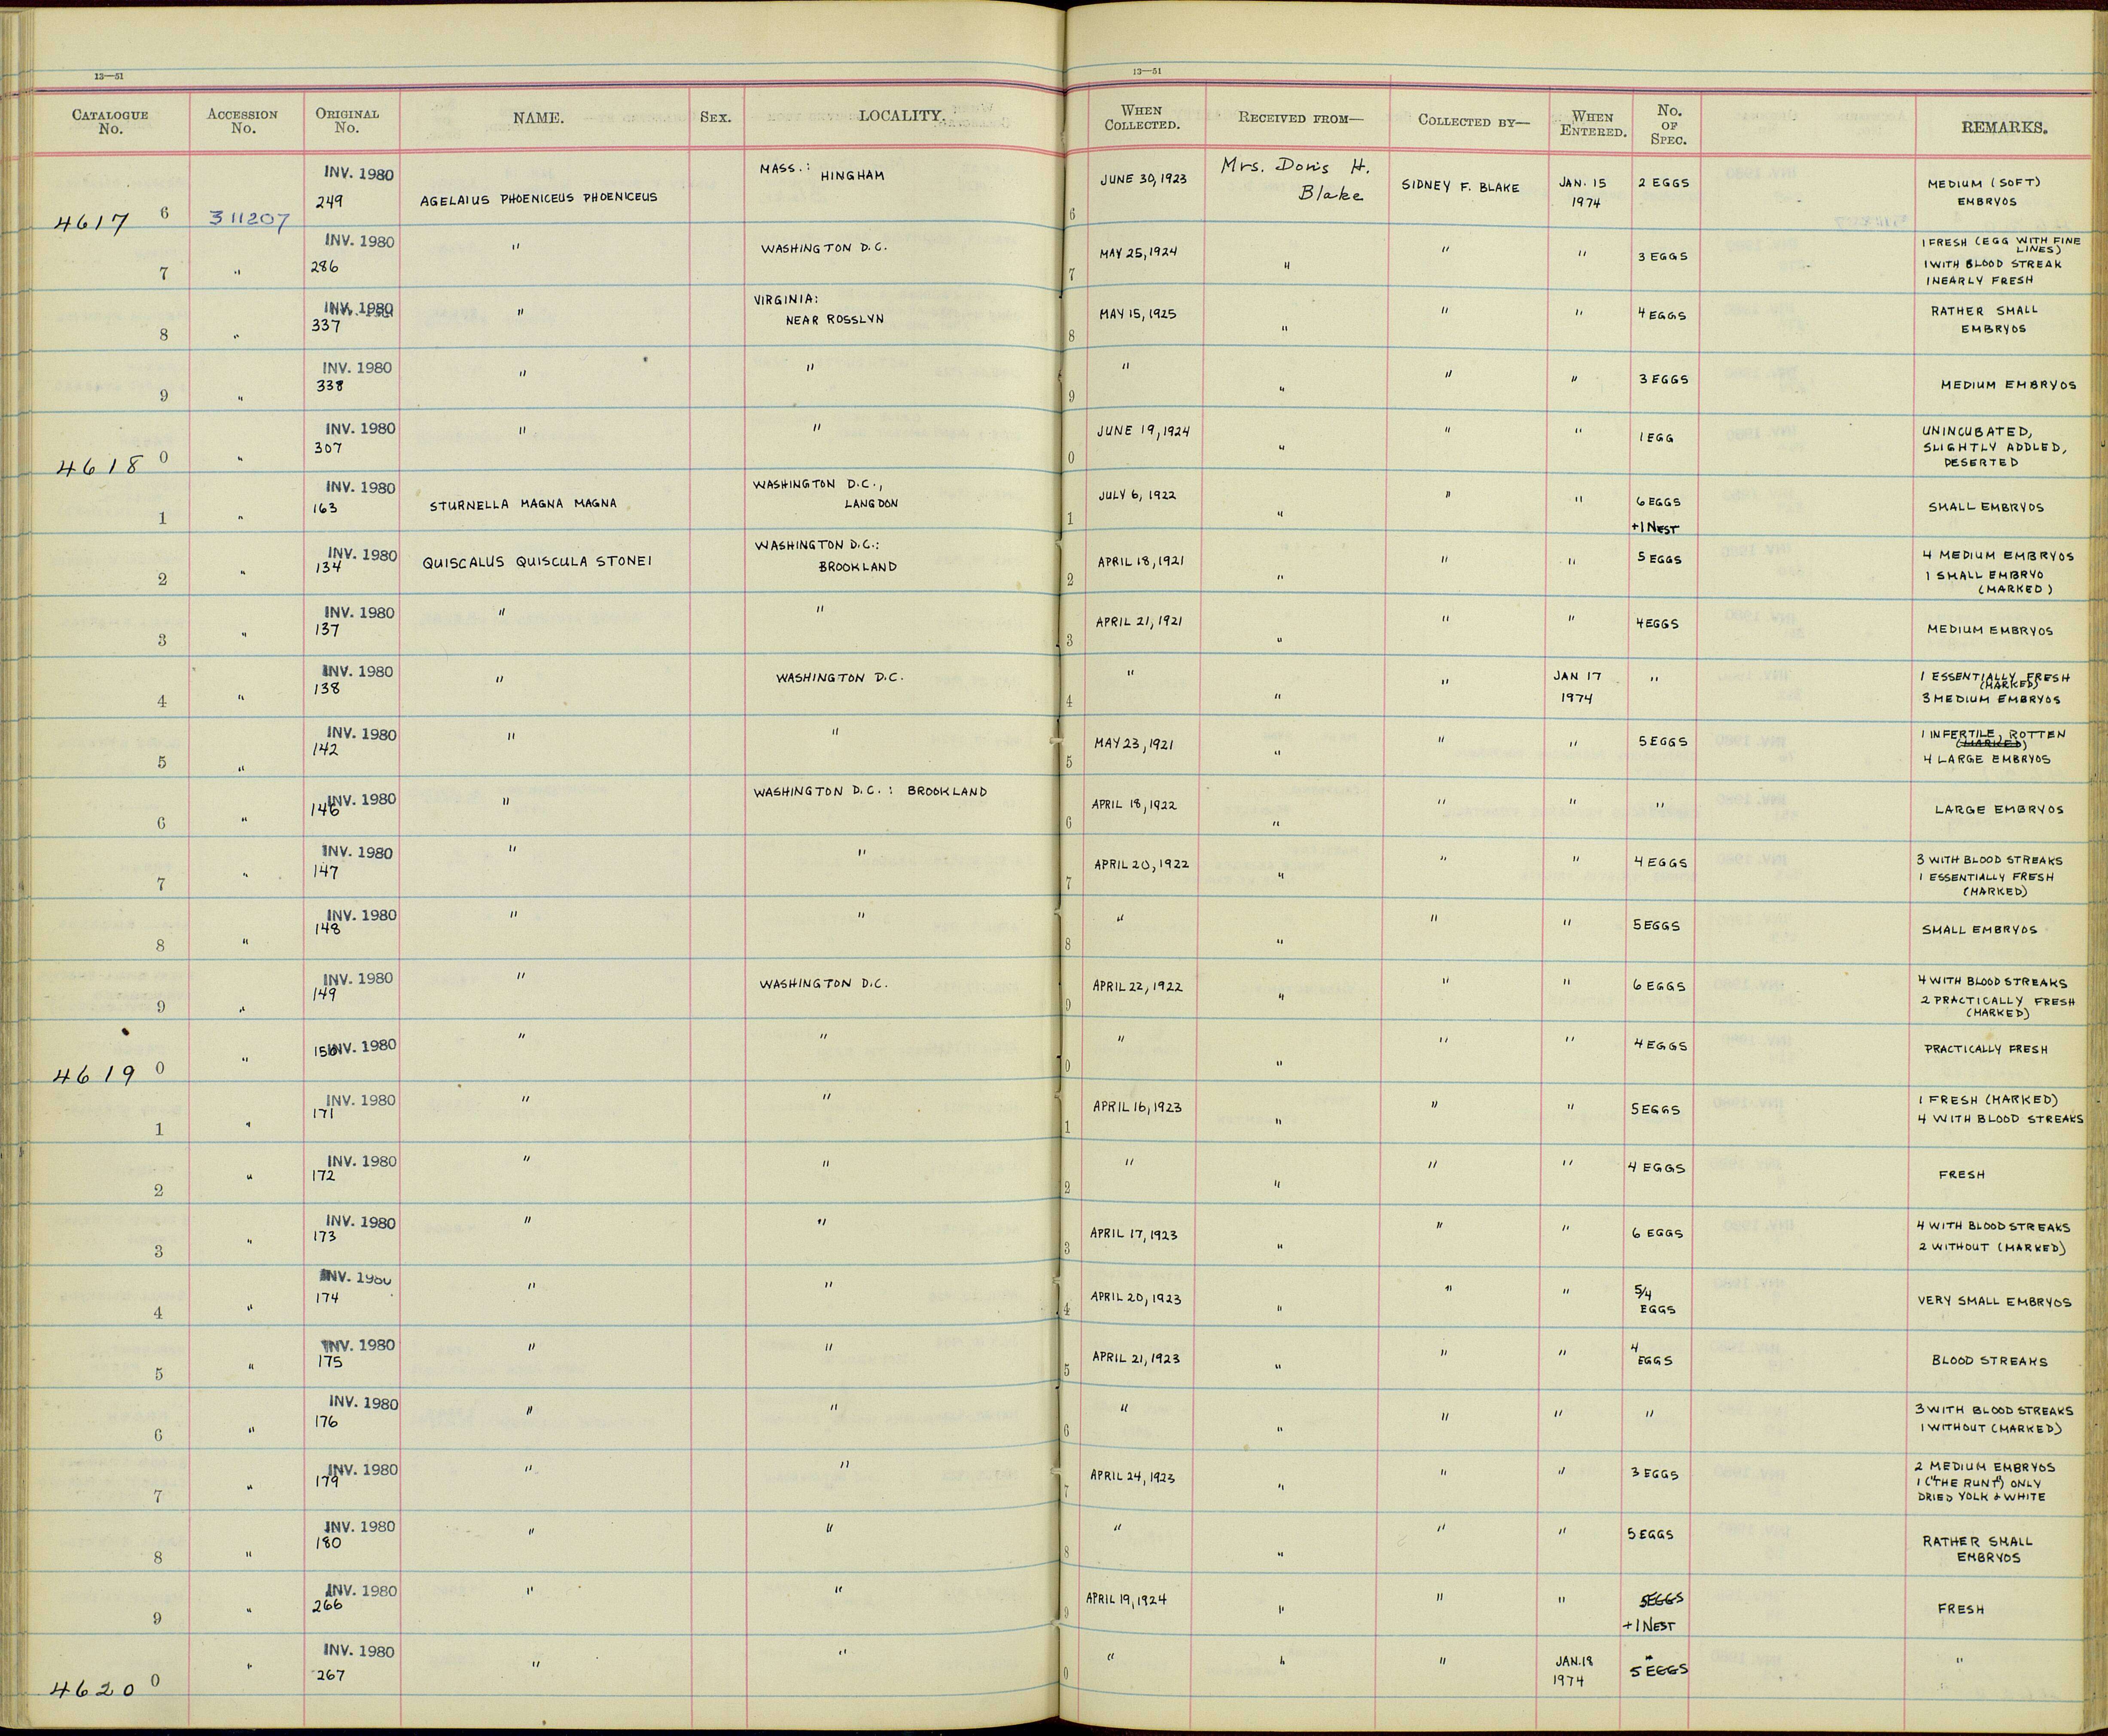 13—51
13—51
CATALOGUE No. ACCESSION No. ORIGINAL No. NAME. SEX. LOCALITY. WHEN COLLECTED. RECEIVED FROM— COLLECTED BY— WHEN ENTERED. No. OF SPEC. REMARKS.
4617 6 311207 INV. 1980 249 AGELAIUS PHOENICEUS PHOENICEUS MASS.: HINGHAM 6 JUNE 30, 1923 Mrs. Doris H. Blake SIDNEY F. BLAKE JAN. 15 1974 2 EGGS MEDIUM (SOFT) EMBRYOS
7 " INV. 1980 286 " WASHINGTON D.C. 7 MAY 25, 1924 " " " 3 EGGS 1 FRESH (EGG WITH FINE LINES) 1 WITH BLOOD STREAK 1 NEARLY FRESH
8 " INV. 1980 337 " VIRGINIA: NEAR ROSSLYN 8 MAY 15, 1925 " " " 4 EGGS RATHER SMALL EMBRYOS
9 " INV. 1980 338 " " 9 " " " " 3 EGGS MEDIUM EMBRYOS
4618 0 " INV. 1980 307 " " 0 JUNE 19, 1924 " " " 1 EGG UNINCUBATED, SLIGHTLY ADDLED, DESERTED
1 " INV. 1980 163 STURNELLA MAGNA MAGNA WASHINGTON D.C., LANGDON 1 JULY 6, 1922 " " " 6 EGGS +1 NEST SMALL EMBRYOS
2 " INV. 1980 134 QUISCALUS QUISCULA STONEI WASHINGTON D.C.: BROOKLAND 2 APRIL 18, 1921 " " " 5 EGGS 4 MEDIUM EMBRYOS 1 SMALL EMBRYO (MARKED)
3 " INV. 1980 137 " " 3 APRIL 21, 1921 " " " 4 EGGS MEDIUM EMBRYOS
4 " INV. 1980 138 " WASHINGTON D.C. 4 " " " JAN 17 1974 " 1 ESSENTIALLY FRESH (MARKED) 3 MEDIUM EMBRYOS
5 " INV. 1980 142 " " 5 MAY 23, 1921 " " " 5 EGGS 1 INFERTILE, ROTTEN (MARKED) 4 LARGE EMBRYOS
6 " INV. 1980 146 " WASHINGTON D.C.: BROOKLAND 6 APRIL 18, 1922 " " " " LARGE EMBRYOS
7 " INV. 1980 147 " " 7 APRIL 20, 1922 " " " 4 EGGS 3 WITH BLOOD STREAKS 1 ESSENTIALLY FRESH (MARKED)
8 " INV. 1980 148 " " 8 " " " " 5 EGGS SMALL EMBRYOS
9 " INV. 1980 149 " WASHINGTON D.C. 9 APRIL 22, 1922 " " " 6 EGGS 4 WITH BLOOD STREAKS 2 PRACTICALLY FRESH (MARKED)
4619 0 " INV. 1980 150 " " 0 " " " " 4 EGGS PRACTICALLY FRESH
1 " INV. 1980 171 " " 1 APRIL 16, 1923 " " " 5 EGGS 1 FRESH (MARKED) 4 WITH BLOOD STREAKS
2 " INV. 1980 172 " " 2 " " " " 4 EGGS FRESH
3 " INV. 1980 173 " " 3 APRIL 17, 1923 " " " 6 EGGS 4 WITH BLOOD STREAKS 2 WITHOUT (MARKED)
4 " INV. 1980 174 " " 4 APRIL 20, 1923 " " " 5/4 EGGS VERY SMALL EMBRYOS
5 " INV. 1980 175 " " 5 APRIL 21, 1923 " " " 4 EGGS BLOOD STREAKS
6 " INV. 1980 176 " " 6 " " " " " 3 WITH BLOOD STREAKS 1 WITHOUT (MARKED)
7 " INV. 1980 179 " " 7 APRIL 24, 1923 " " " 3 EGGS 2 MEDIUM EMBRYOS 1 ("THE RUNT") ONLY DRIED YOLK & WHITE
8 " INV. 1980 180 " " 8 " " " " 5 EGGS RATHER SMALL EMBRYOS
9 " INV. 1980 266 " " 9 APRIL 19, 1924 " " " 5 EGGS +1 NEST FRESH
4620 0 " INV. 1980 267 " " 0 " " " JAN. 18 1974 5 EGGS "